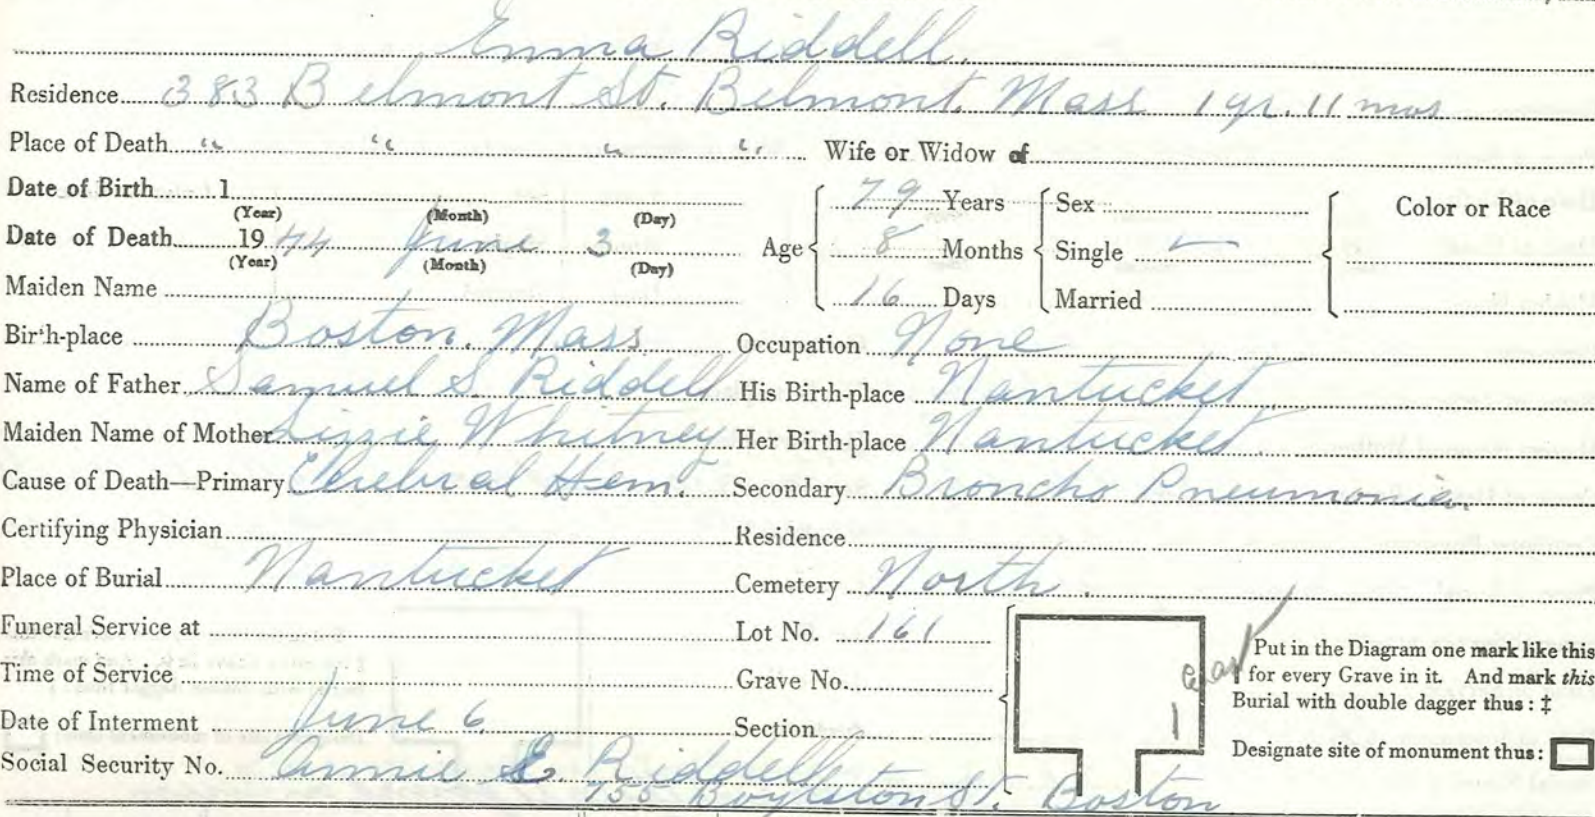 Emma Riddell.
Residence 383 Belmont St. Belmont, Mass 1 yr. 11 mos
Place of Death " " " " Wife or Widow of
Date of Birth 1 Age 79 Years Sex Color or Race
(Year) (Month) (Day)
Date of Death 1944 June 3 8 Months Single ✓
(Year) (Month) (Day)
Maiden Name 16 Days Married
Birth-place Boston, Mass Occupation None
Name of Father Samuel S. Riddell His Birth-place Nantucket
Maiden Name of Mother Lizzie Whitney Her Birth-place Nantucket.
Cause of Death—Primary Cerebral Hem. Secondary Broncho Pneumonia.
Certifying Physician Residence
Place of Burial Nantucket Cemetery North.
Funeral Service at Lot No. 161
Time of Service Grave No.
Date of Interment June 6 Section
Social Security No. Annie E. Riddell
755 Boylston St. Boston
East
Put in the Diagram one mark like this
for every Grave in it. And mark this
Burial with double dagger thus: ‡
Designate site of monument thus: